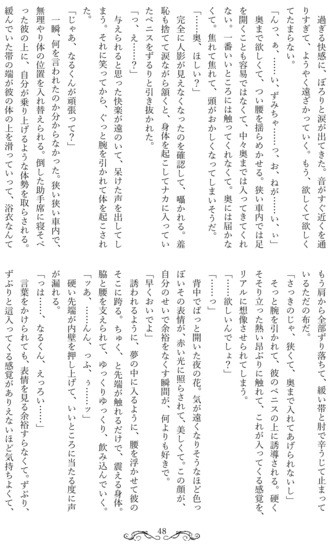 過ぎる快感に、ぽろりと涙が出てきた。音がすぐ近くを通
りすぎて、ようやく遠ざかっていく。もう、欲しくて欲しく
てたまらない。
「んっぁ、……い、ずみちゃ……っ、お、ねが……い、ぃ」
奥まで欲しくて、つい腰を揺らめかせる。狭い車内では足
を開くことも容易ではなくて、中々奥までは入ってきてくれ
ない。一番いいところには触ってくれなくて。奥には届かな
くて。焦れて焦れて、頭がおかしくなってしまいそうだ。
「……奥、ほしい？」
完全に人影が見えなくなったのを確認して、囁かれる。羞
恥も捨てて涙ながら頷くと、身体を起こしてナカに入ってい
たペニスをずるりと引き抜かれた。
「っ、え……？」
与えられると思った快楽が遠のいて、呆けた声を出してし
まう。それに笑ってから、ぐっと腕を引かれて体を起こされ
た。
「じゃあ、なるくんが頑張って？」
一瞬、何を言われたのか分からなかった。狭い狭い車内で、
無理やり体の位置を入れ替えられる。倒した助手席に寝そべ
った彼の上に、自分が乗り上げるような体勢を取らされる。
緩んでいた帯の端が彼の体の上を滑っていって、浴衣なんて
もう肩から全部ずり落ちて、緩い帯と肘で辛うじて止まって
いるただの布だ。
「さっきのじゃ、狭くて、奥まで入れてあげられないし」
そっと腕を引かれて、彼のペニスの上に誘導される。硬く
そそり立った熱い昂ぶりに触れて、これが入ってくる感覚を、
リアルに想像させられてしまう。
「……欲しいんでしょ？」
「……っ」
背中でぱっと開いた夜の花。気が遠くなりそうなほど色っ
ぽいその表情が、赤い光に照らされて、美しくて。この顔が、
自分のせいで余裕をなくす瞬間が、何よりも好きで。
「早くおいでよ」
誘われるように、夢の中に入るように、腰を浮かせて彼の
そこに跨る。ちゅく、と先端が触れるだけで、震える身体。
脇と腰を支えられて、ゆっくりゆっくり、飲み込んでいく。
「ッあ、……んん、っふ、ぅ……ッ」
硬い先端が内壁を押し上げて、いいところに当たる度に声
が漏れる。
「っは……、なるくん、えっろい……」
言葉をかけられても、表情を見る余裕すらなくて。ずぶり、
ずぶりと這入ってくる感覚がありえないほど気持ちよくて、
48